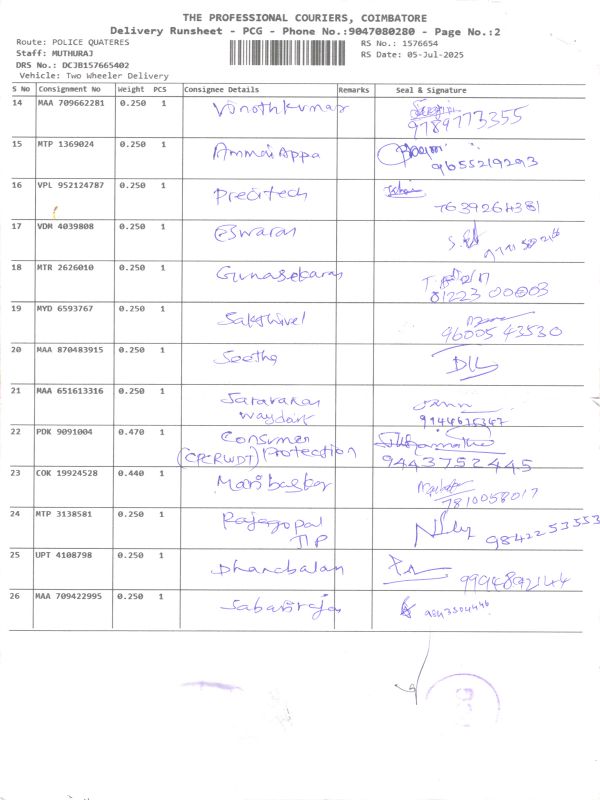 THE PROFESSIONAL COURIERS, COIMBATORE
Delivery Runsheet - PCG - Phone No.:9047080280 - Page No.:2
Route: POLICE QUATERES
RS No.: 1576654
Staff: MUTHURAJ
RS Date: 05-Jul-2025
DRS No.: DCJB157665402
Vehicle: Two Wheeler Delivery
S No Consignment No Weight PCS Consignee Details Remarks Seal & Signature
14 MAA 709662281 0.250 1 Vinothkumar
9789773355
15 MTP 1369024 0.250 1 AmmaiAppa
9655219293
16 VPL 952124787 0.250 1 Precitech
7639264381
17 VDM 4039808 0.250 1 Eswaran
18 MTR 2626010 0.250 1 Gunasekaran
01223 00003
19 MYD 6593767 0.250 1 Sakthivel
96005 43530
20 MAA 870483915 0.250 1 Soothe
21 MAA 651613316 0.250 1 Saravanan
22 PDK 9091004 0.470 1 Consumer
(CPCRWDT) Protection
9443752445
23 COK 19924528 0.440 1 Maribaskar
7810058017
24 MTP 3138581 0.250 1 Rajagopal
TIP
9842253553
25 UPT 4108798 0.250 1 Dhanabalan
26 MAA 709422995 0.250 1 Sabariraja
9843504446